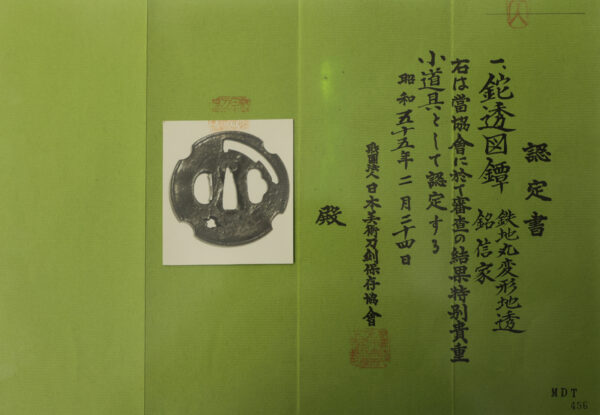 認定書
一、鉈透図鐔 鉄地丸変形地透
銘信家
右は當協會に於て審査の結果特別貴重
小道具として認定する
昭和五十五年二月二十四日
財團法人日本美術刀剣保存協會
殿
MDT
456